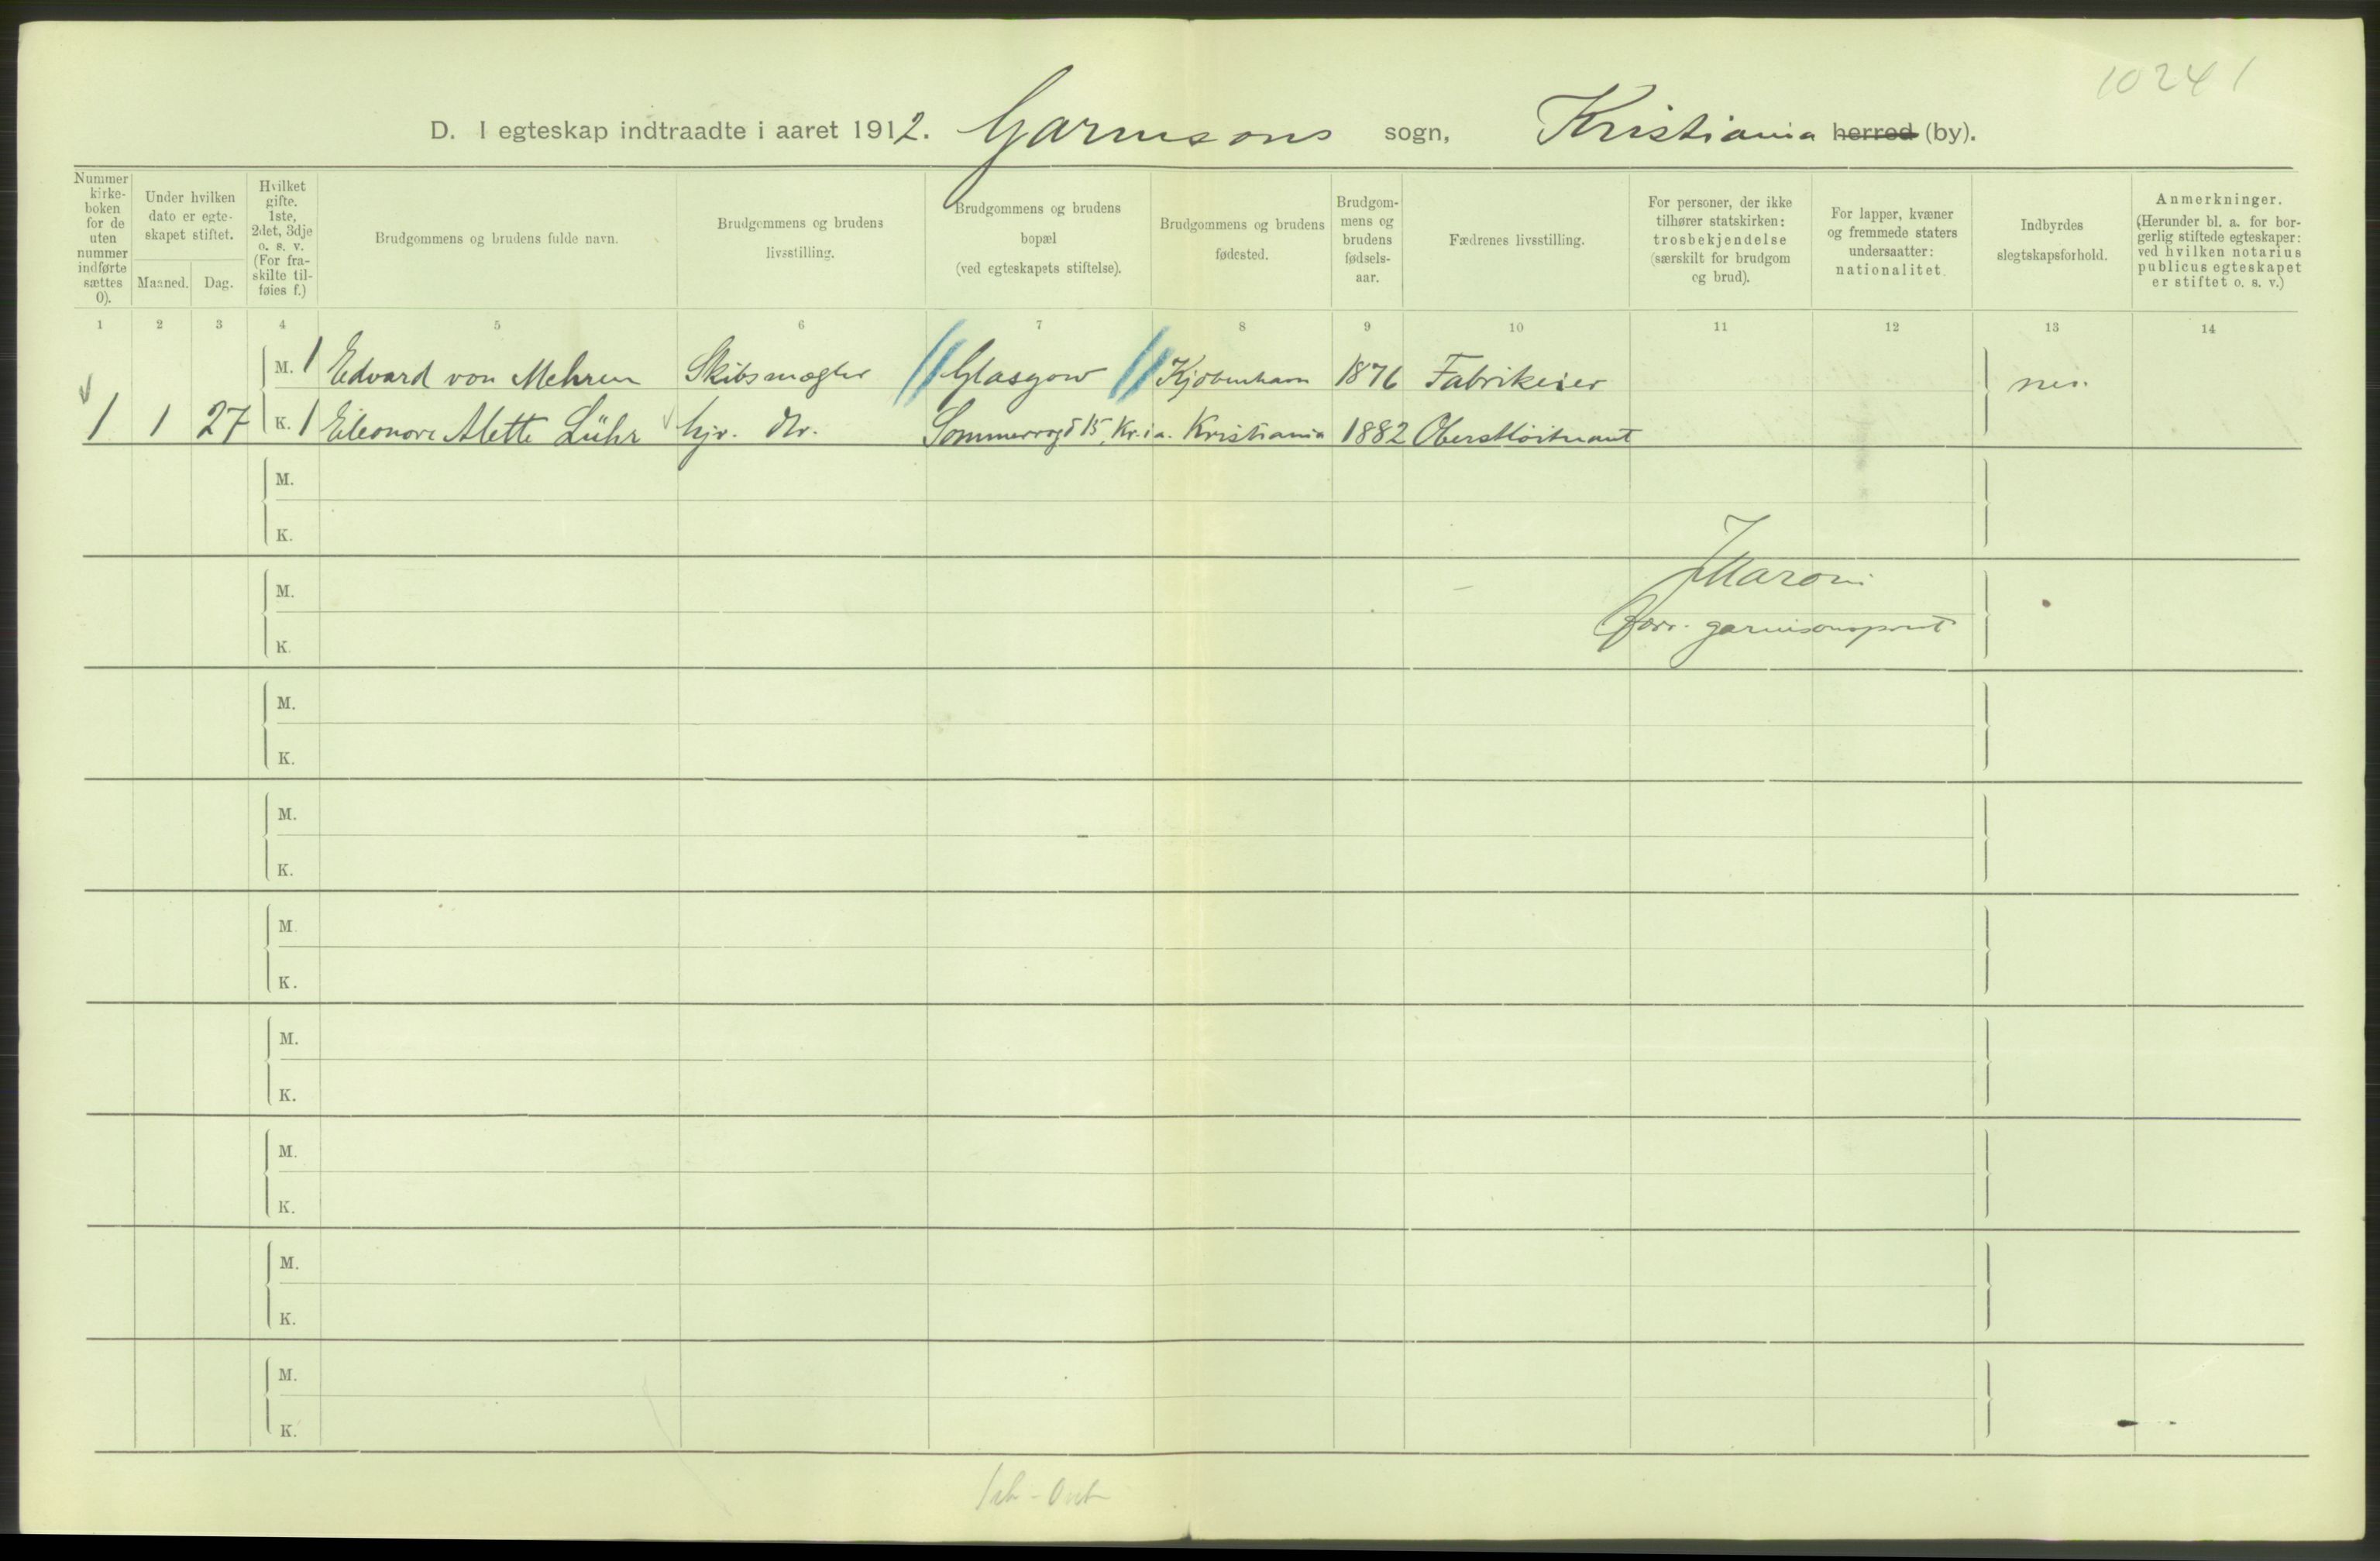 10241
D. I egteskap indtraadte i aaret 1912. Garnisons sogn, Kristiania herred (by).
Nummer
kirke-
boken
for de
uten
nummer
indførte
sættes
0).
Under hvilken
dato er egte-
skapet stiftet.
Maaned. Dag.
Hvilket
gifte.
1ste,
2det, 3dje
o. s. v.
(For fra-
skilte til-
føies f.)
Brudgommens og brudens fulde navn.
Brudgommens og brudens
livsstilling.
Brudgommens og brudens
bopæl
(ved egteskapets stiftelse).
Brudgommens og brudens
fødested.
Brudgom-
mens og
brudens
fødsels-
aar.
Fædrenes livsstilling.
For personer, der ikke
tilhører statskirken:
trosbekjendelse
(særskilt for brudgom
og brud).
For lapper, kvæner
og fremmede staters
undersaatter:
nationalitet.
Indbyrdes
slegtskapsforhold.
Anmerkninger.
(Herunder bl. a. for bor-
gerlig stiftede egteskaper:
ved hvilken notarius
publicus egteskapet
er stiftet o. s. v.)
1 2 3 4 5 6 7 8 9 10 11 12 13 14
M. 1 Edvard von Mehren Skibsmægler Glasgow Kjöbenhavn 1876 Fabrikeier nei.
1 1 27 K. 1 Eleonore Alette Lühr hjv. dtr. Sommerrogt 15, Kr.ia. Kristiania 1882 Oberstlöitnant
M.
K.
M. JMaroni
K. garnisonsprest
M.
K.
M.
K.
M.
K.
M.
K.
M.
K.
M.
K.
M.
K.